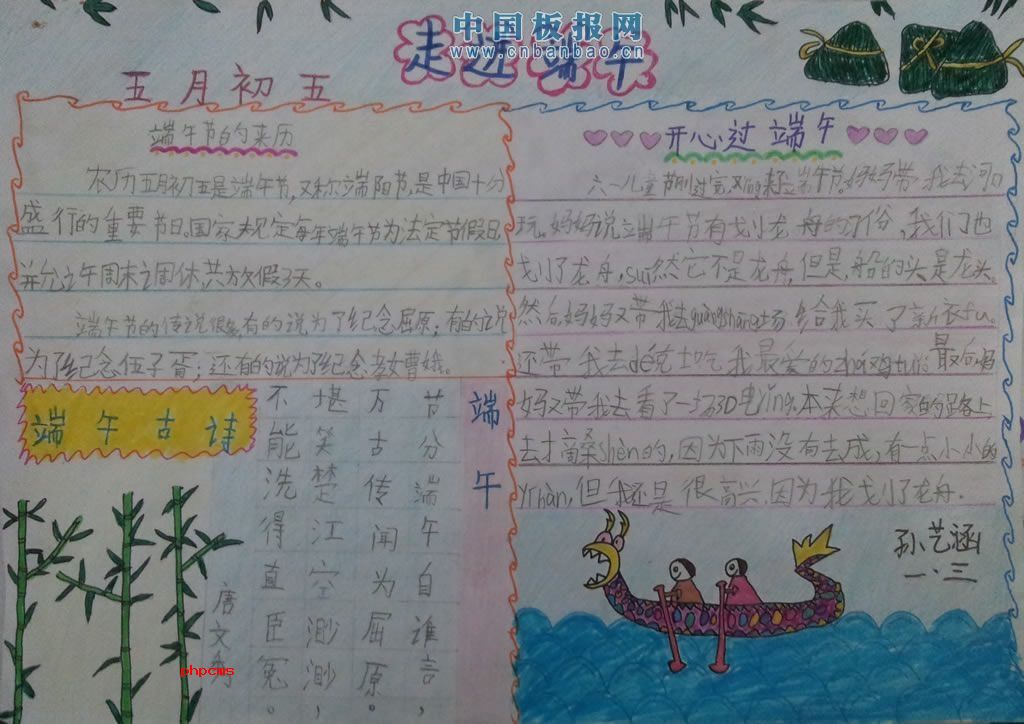 中国板报网
www.cnbanbao.cn
走进端午
五月初五
端午节的来历
农历五月初五是端午节,又称端阳节,是中国十分
盛行的重要节日。国家规定每年端午节为法定节假日
并允之午周末之周休,共放假3天。
端午节的传说很多,有的说为了纪念屈原;有的说
为了纪念伍子胥;还有的说为了纪念孝女曹娥。
端午古诗
端午
节分端午自谁言,
万古传闻为屈原。
堪笑楚江空渺渺,
不能洗得直臣冤。
唐文秀
phpcms
开心过端午
六一儿童节刚过完又迎来端午节,妈妈带我去河口
玩。妈妈说端午节有戈小龙舟的习俗,我们也
戈小了龙舟,sun然它不是龙舟,但是,船的头是龙头,
然后妈妈又带我去guangshang场给我买了新衣fu。
还带我去dé克士吃我最爱的zhá鸡tuǐ,最后妈
妈又带我去看了一场3D电yǐng。本来想回家的路上
去才商桑shèn的,因为下雨没有去成,有一点小小的
yí hàn,但我还是很高兴,因为我戈小了龙舟.
孙艺涵
一.三